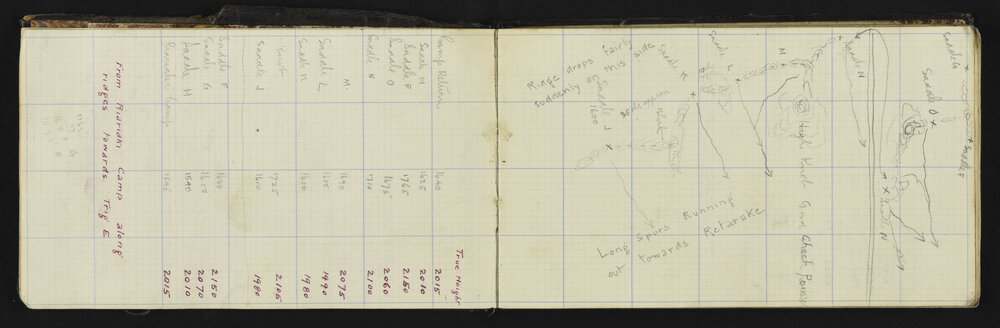 True Height
Camp Return 1640 2015
Saddle M 1625 2010
Saddle P 1765 2150
Saddle O 1675 2060
Saddle N 1710 2100
M. 1690 2075
Saddle L 1615 1990
Saddle K 1600 1980
Knot 1725 2105
Saddle J 1600 1980
Saddle F 2150
Saddle G 1650 2070
Saddle H 1540 2010
Camp 1545 2015
From Riariaki Camp along
ridges towards Trig E
Saddle G
Saddle F
Saddle O
Saddle N
Saddle N
M
High Knot Good Check Point
Saddle L
Saddle K
Ridge drops fairly
suddenly this side
Saddle J
1600
High
Long Spurs Running
out towards Retaruke